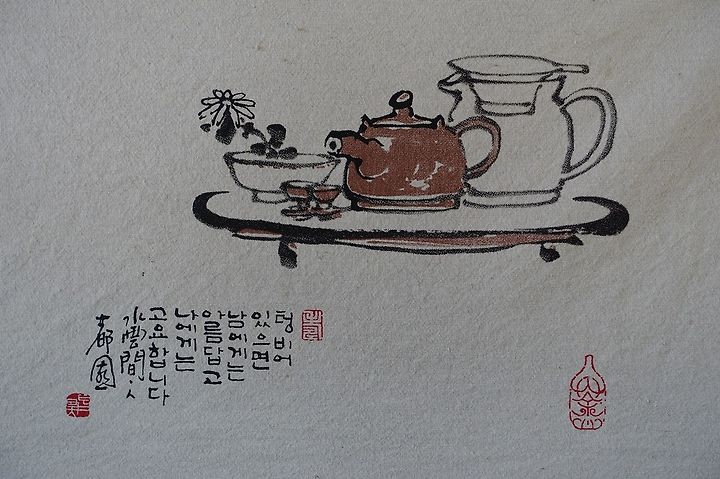 텅 비어
있으면
남에게는
아름답고
나에게는
고요합니다
水雲間·人
都園